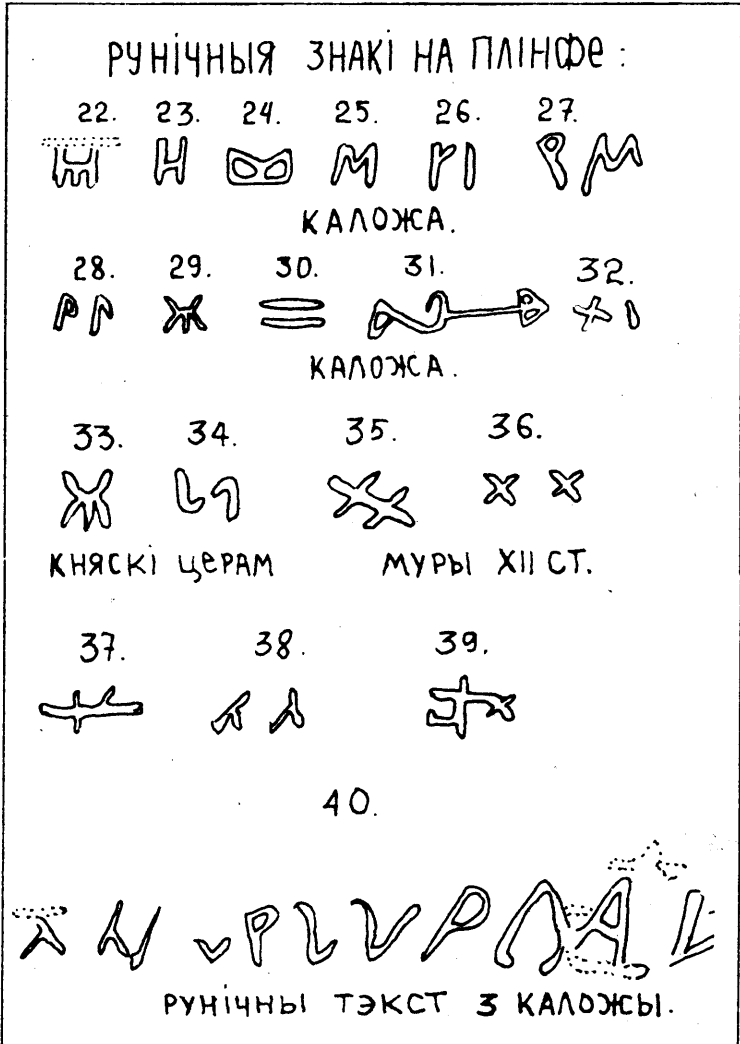 РУНІЧНЫЯ ЗНАКІ НА ПЛІНФЕ:
22. 23. 24. 25. 26. 27.
КАЛОЖА.
28. 29. 30. 31. 32.
КАЛОЖА.
33. 34. 35. 36.
КНЯСКІ ЦЕРАМ МУРЫ XII СТ.
37. 38. 39.
40.
РУНІЧНЫ ТЭКСТ З КАЛОЖЫ.